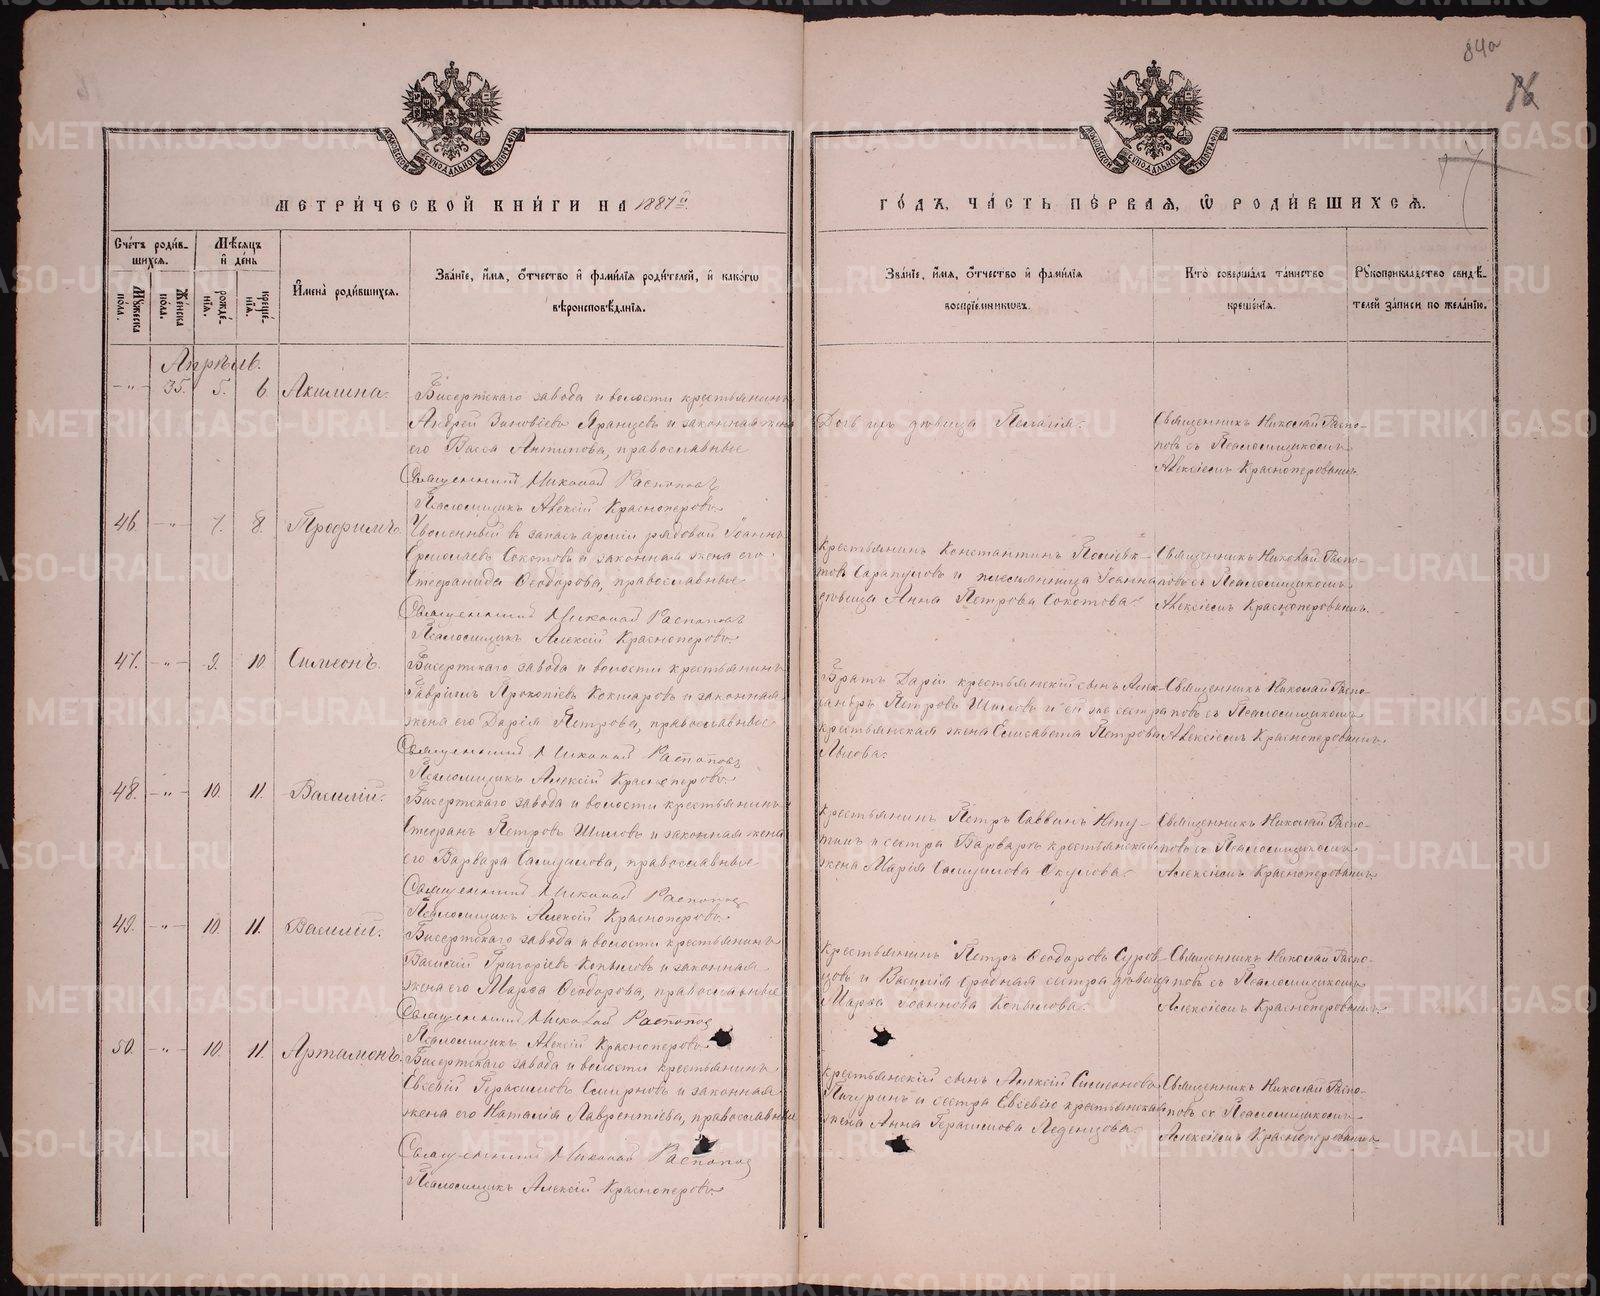 84а
МЕТРИ́ЧЕСКОЙ КНИ́ГИ НА 1887й.
ГО́ДЪ, ЧА́СТЬ ПЕ́РВАЯ, Ѡ РОДИ́ВШИХСЯ.
Сче́тъ роди́в-
шихся.
Му́жеска пола.
Же́нска пола.
Мѣсяцъ и де́нь
рожде́нїя.
креще́нїя.
И̓мена̀ роди́вшихся.
Зва́нїе, и́мя, о́тчество и фами́лїя роди́телей, и како́гѡ
вѣроисповѣ́данїя.
Зва́нїе, и́мя, о́тчество и фами́лїя
воспрїе́мниковъ.
Кто̀ соверша́лъ та́инство
креще́нїя.
Рꙋкоприкла́дство свидѣ́-
телей за́писи по жела́нїю.
Апрѣль.
-"- 35. 5. 6. Акилина.
Бисертскаго завода и волости крестьянинъ
Андрей Зиновіевъ Яранцевъ и законная жена
его Васса Антипова, православные
Священникъ Николай Распоповъ
Псаломщикъ Алексій Красноперовъ
Дочь ихъ дѣвица Пелагія.
Священникъ Николай Распо-
повъ съ Псаломщикомъ
Алексіемъ Красноперовымъ.
46 -"- 7. 8. Трофимъ.
Уволенный въ запасъ арміи рядовой Іоаннъ
Ермолаевъ Сокотовъ и законная жена его
Стефанида Ѳеодорова, православные
Священникъ Николай Распоповъ
Псаломщикъ Алексій Красноперовъ
Крестьянинъ Константинъ
Сарапуловъ и племянница Іоанна
дѣвица Анна Петрова Сокотова.
Священникъ Николай Распо-
повъ съ Псаломщикомъ
Алексіемъ Красноперовымъ.
47. -"- 9. 10. Симеонъ.
Бисертскаго завода и волости крестьянинъ
Гавріилъ Прокопіевъ Кокшаровъ и законная
жена его Дарія Петрова, православные
Священникъ Николай Распоповъ
Псаломщикъ Алексій Красноперовъ
Братъ Даріи крестьянскій сынъ Алек-
сандръ Петровъ Шиловъ и ея же сестра
крестьянская жена Елисавета Петрова
Священникъ Николай Распо-
повъ съ Псаломщикомъ
Алексіемъ Красноперовымъ
48. -"- 10. 11. Василій.
Бисертскаго завода и волости крестьянинъ
Стефанъ Петровъ Шиловъ и законная жена
его Варвара Самуилова, православные
Священникъ Николай Распоповъ
Псаломщикъ Алексій Красноперовъ
Крестьянинъ Петръ Саввинъ Непу-
тинъ и сестра Варвары крестьянская
жена Марія Самуилова Окулова.
Священникъ Николай Распо-
повъ съ Псаломщикомъ
Алексіемъ Красноперовымъ
49. -"- 10. 11. Василій.
Бисертскаго завода и волости крестьянинъ
Василій Григоріевъ Копыловъ и законная
жена его Марѳа Ѳеодорова, православные
Священникъ Николай Распопов
Псаломщикъ Алексій Красноперовъ
Крестьянинъ Петръ Ѳеодоровъ Суров-
цовъ и Василія сродная сестра дѣвица
Марѳа Іоаннова Копылова.
Священникъ Николай Распо-
повъ съ Псаломщикомъ
Алексіемъ Красноперовымъ.
50. -"- 10. 11. Артамонъ.
Бисертскаго завода и волости крестьянинъ
Евсевій Герасимовъ Смирновъ и законная
жена его Наталія Лаврентіева, православные
Священникъ Николай Распопов
Псаломщикъ Алексій Красноперовъ
Крестьянскій сынъ Алексій Симеоновъ
Пичугинъ и сестра Евсевію крестьянская
жена Анна Герасимова Леденцова.
Священникъ Николай Распо-
повъ съ Псаломщикомъ
Алексіемъ Красноперовымъ